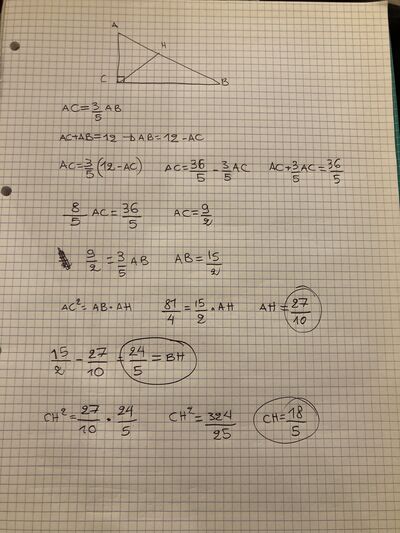 A
H
C B
AC=3/5 AB
AC+AB=12 → AB=12-AC
AC=3/5(12-AC) AC=36/5-3/5AC AC+3/5AC=36/5
8/5 AC=36/5 AC=9/2
9/2=3/5 AB AB=15/2
AC²=AB·AH 81/4=15/2·AH AH=27/10
15/2-27/10=24/5=BH
CH²=27/10·24/5 CH²=324/25 CH=18/5